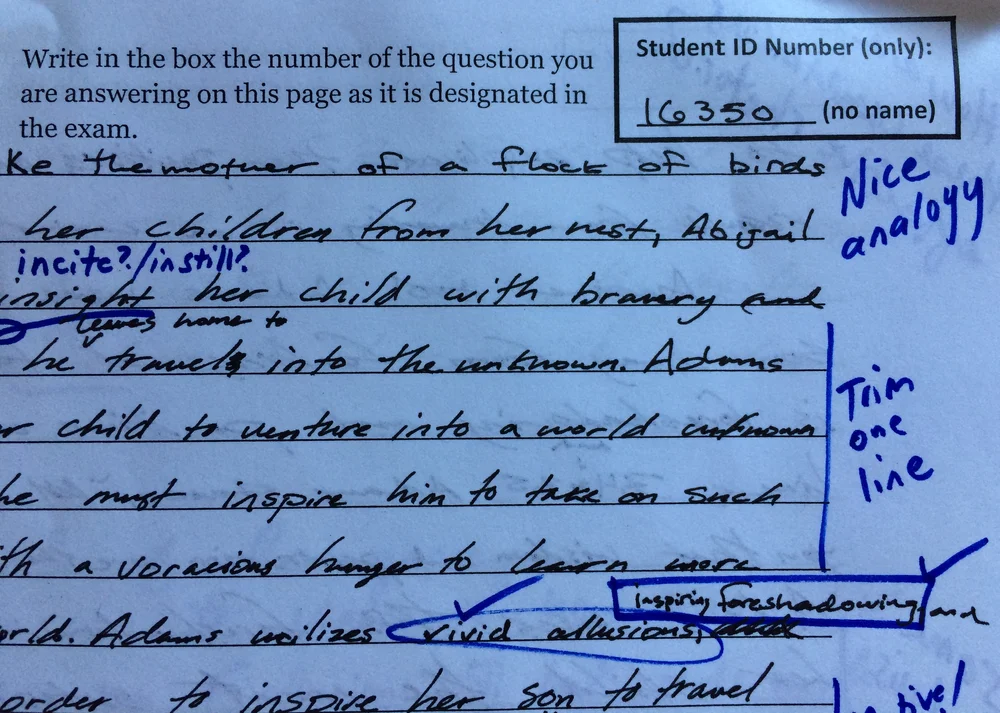 Write in the box the number of the question you
are answering on this page as it is designated in
the exam.
Student ID Number (only):
16350 (no name)
ke the mother of a flock of birds
Nice
analogy
her children from her nest, Abigail
incite?/instill?
insight her child with bravery and
leaves home to
he travels into the unknown. Adams
child to venture into a world unknown
Trim
one
line
he must inspire him to take on such
th a voracious hunger to learn more
inspiring foreshadowing, and
orld. Adams utilizes vivid allusions,
order to inspire her son to travel